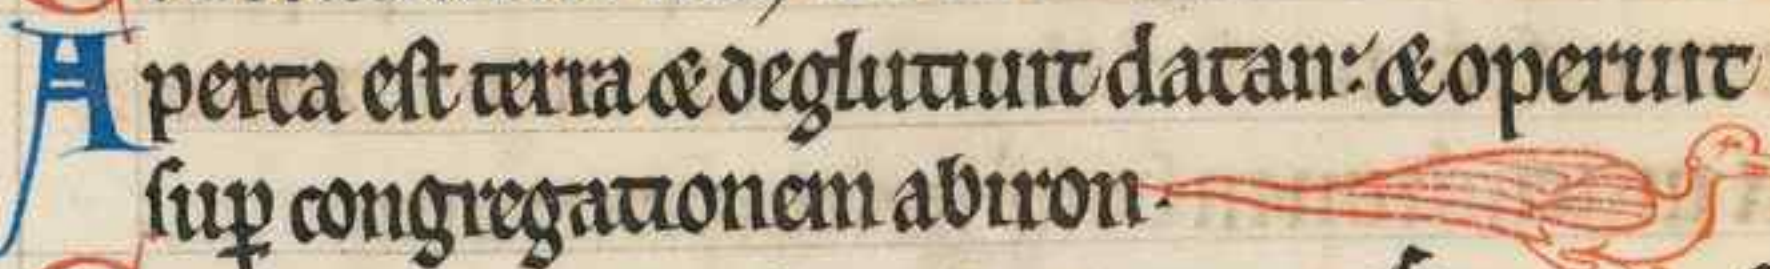 Aperta est terra & deglutiuit datan: & operuit
sup congregationem abiron.